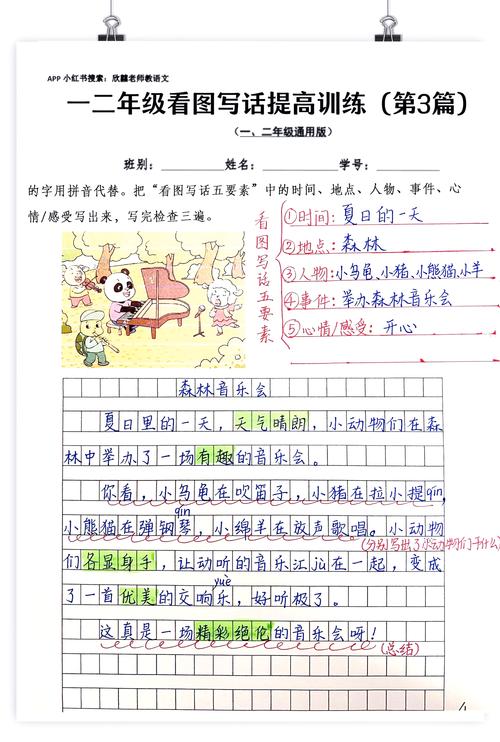 APP 小红书搜索：欣囍老师教语文
一二年级看图写话提高训练（第3篇）
（一、二年级通用版）
班别：　姓名：　学号：
的字用拼音代替。把“看图写话五要素”中的时间、地点、人物、事件、心
情/感受写出来，写完检查三遍。
看图写话五要素
①时间：夏日的一天
②地点：森林
③人物：小乌龟、小猪、小熊猫、小羊
④事件：举办森林音乐会
⑤心情/感受：开心
森林音乐会
夏日里的一天，天气晴朗，小动物们在森
林中举办了一场有趣的音乐会。
你看，小乌龟在吹笛子，小猪在拉小提qín，
qín
小熊猫在弹钢琴，小绵羊在放声歌唱。小动物
(分别写出了小动物们干什么)
们各显身手，让动听的音乐汇jù在一起，变成
yuè
了一首优美的交响乐，好听极了。
这真是一场精彩绝伦的音乐会呀！
(总结)